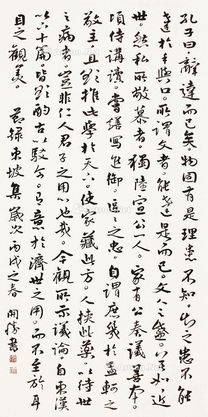 孔子曰辭達而已矣物固有是理患不知之知之患不能
達之於口與手所謂文者能達是而已文人之盛莫如近
世然私所敬慕者獨陸宣公一人家有公奏議善本
頃侍講讀嘗繕寫進御區區之忠自謂庶幾於孟軻之
敬王且欲推此學於天下使家藏此方人挾此藥以待世
之病者豈非仁人君子之用心也哉今觀所示議論自東漢
以下十篇皆欲酌古以馭今有意於濟世之用而不至於耳
目之觀美
節錄東坡集歲次丙戌之春